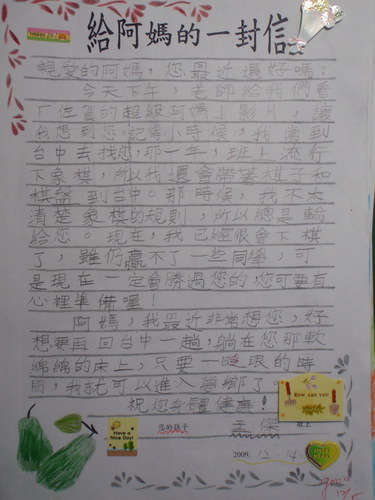 給阿媽的一封信
親愛的阿媽，您最近還好嗎：
今天下午，老師給我們看
「佐賀的超級阿媽」影片，讓
我想到您。記得小時候，我常到
台中去找您，那一年，班上流行
下象棋，所以我還會帶著棋子和
棋盤到台中。那時候，我不太
清楚象棋的規則，所以總是輸
給您。現在，我已經很會下棋
了，雖仍贏不了一些同學，可
是現在一定會勝過您的，您可要有
心裡準備喔！
阿媽，我最近非常想您，好
想要再回台中一趟，躺在您那軟
綿綿的床上，只要一眨眼的時
間，我就可以進入夢鄉了。
祝您身體健康！
How are you
Have a
Nice Day!
您的孫子
孟傑
敬上
2009. 12 - 14.